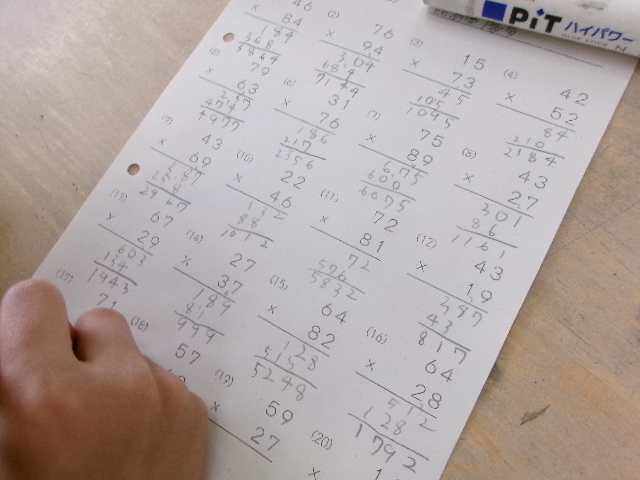 PiT ハイパワー
46
× 84
184
368
3864
(2)
76
× 94
304
684
7144
(3)
15
× 73
45
105
1095
(4)
42
× 52
84
210
2184
79
× 63
237
474
4977
(6)
31
× 76
186
217
2356
(7)
75
× 89
675
600
6675
(8)
43
× 27
301
86
1161
(9)
43
× 69
387
258
2967
(10)
22
× 46
132
88
1012
(11)
72
× 81
72
576
5832
(12)
43
× 19
387
43
817
(13)
67
× 29
603
134
1943
(14)
27
× 37
189
81
999
(15)
64
× 82
128
512
5248
(16)
64
× 28
512
128
1792
(17)
71
(18)
57
(19)
59
× 27
(20)
×